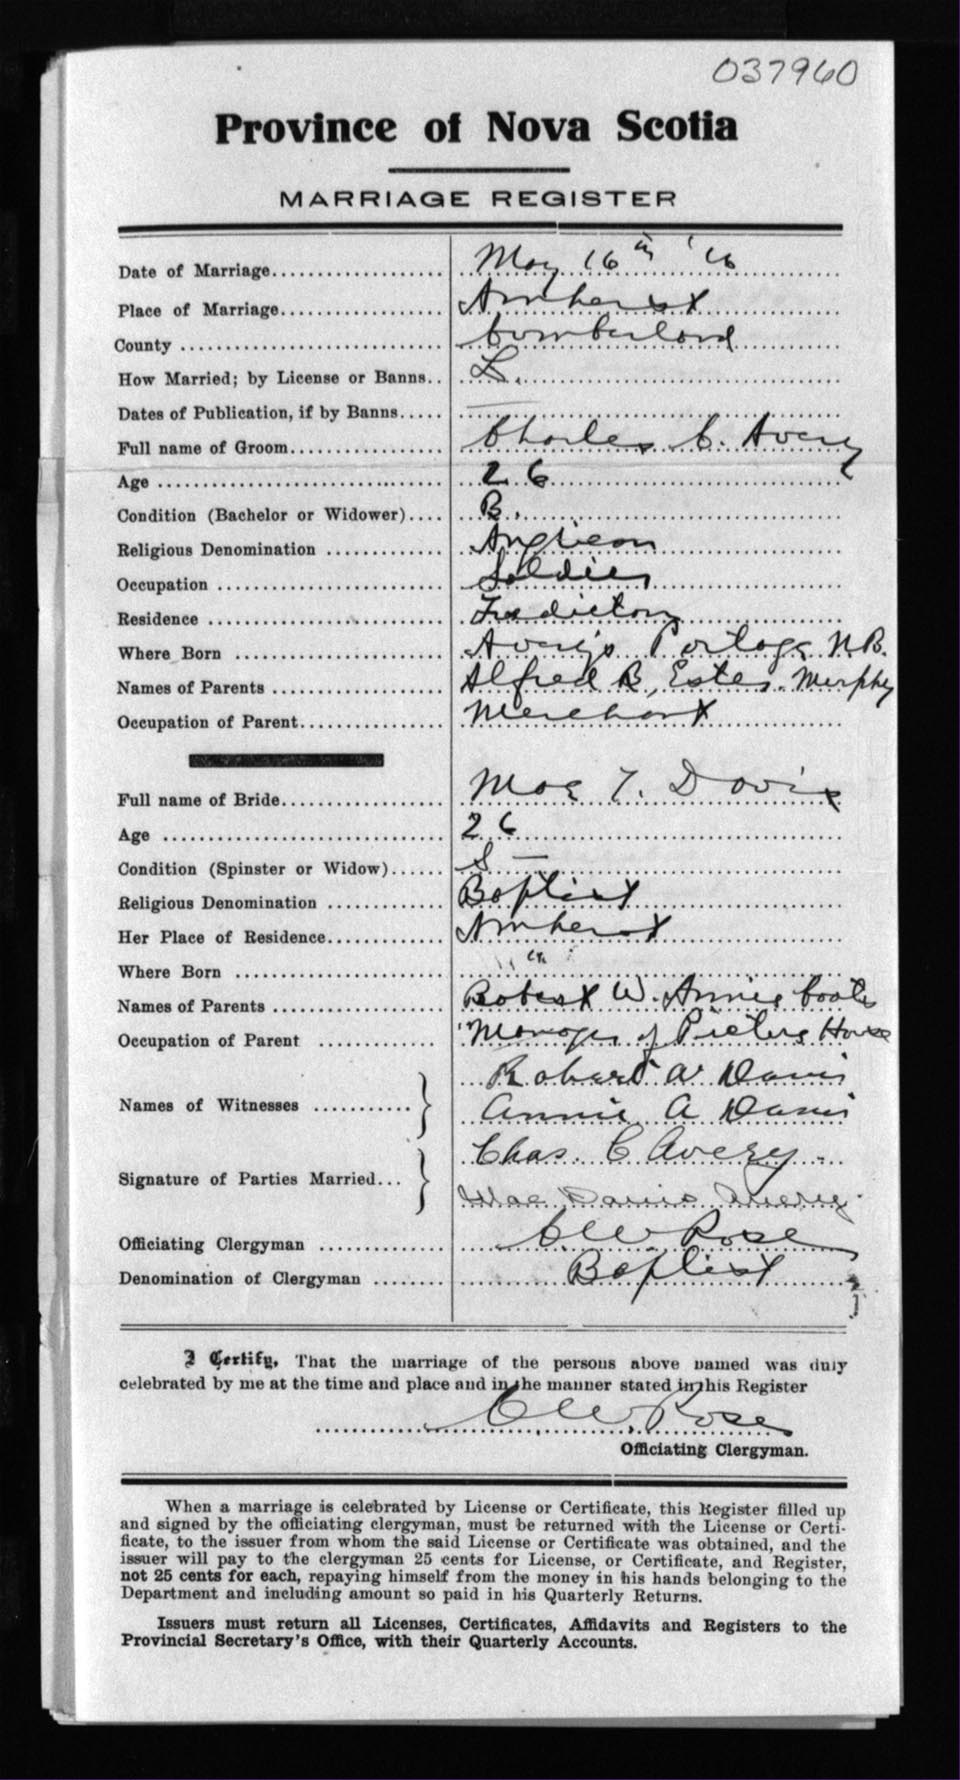 037960
Province of Nova Scotia
MARRIAGE REGISTER
Date of Marriage.................... May 16th '16
Place of Marriage................... Amherst
County .............................. Cumberland
How Married; by License or Banns.. L.
Dates of Publication, if by Banns..... —
Full name of Groom.................. Charles C. Avery
Age ................................. 26
Condition (Bachelor or Widower).... B.
Religious Denomination ............. Anglican
Occupation .......................... Soldier
Residence ........................... Fredicton
Where Born ........................ Avery's Portage N.B.
Names of Parents ................... Alfred B, Estes. Murphy
Occupation of Parent................ Merchant
Full name of Bride................... Mae T. Davis
Age ................................. 26
Condition (Spinster or Widow)...... S —
Religious Denomination ............. Baptist
Her Place of Residence............. Amherst
Where Born ........................ "
Names of Parents ................... Robert W. Annie Coates
Occupation of Parent .............. Manager of House
Names of Witnesses ........... Robert W Davis
Annie A Davis
Signature of Parties Married... Chas. C Avery
Mae Davis Avery
Officiating Clergyman .............. C W Rose
Denomination of Clergyman ........ Baptist
I Certify, That the marriage of the persons above named was duly
celebrated by me at the time and place and in the manner stated in this Register
C W Rose
Officiating Clergyman.
When a marriage is celebrated by License or Certificate, this Register filled up
and signed by the officiating clergyman, must be returned with the License or Certi-
ficate, to the issuer from whom the said License or Certificate was obtained, and the
issuer will pay to the clergyman 25 cents for License, or Certificate, and Register,
not 25 cents for each, repaying himself from the money in his hands belonging to the
Department and including amount so paid in his Quarterly Returns.
Issuers must return all Licenses, Certificates, Affidavits and Registers to the
Provincial Secretary's Office, with their Quarterly Accounts.